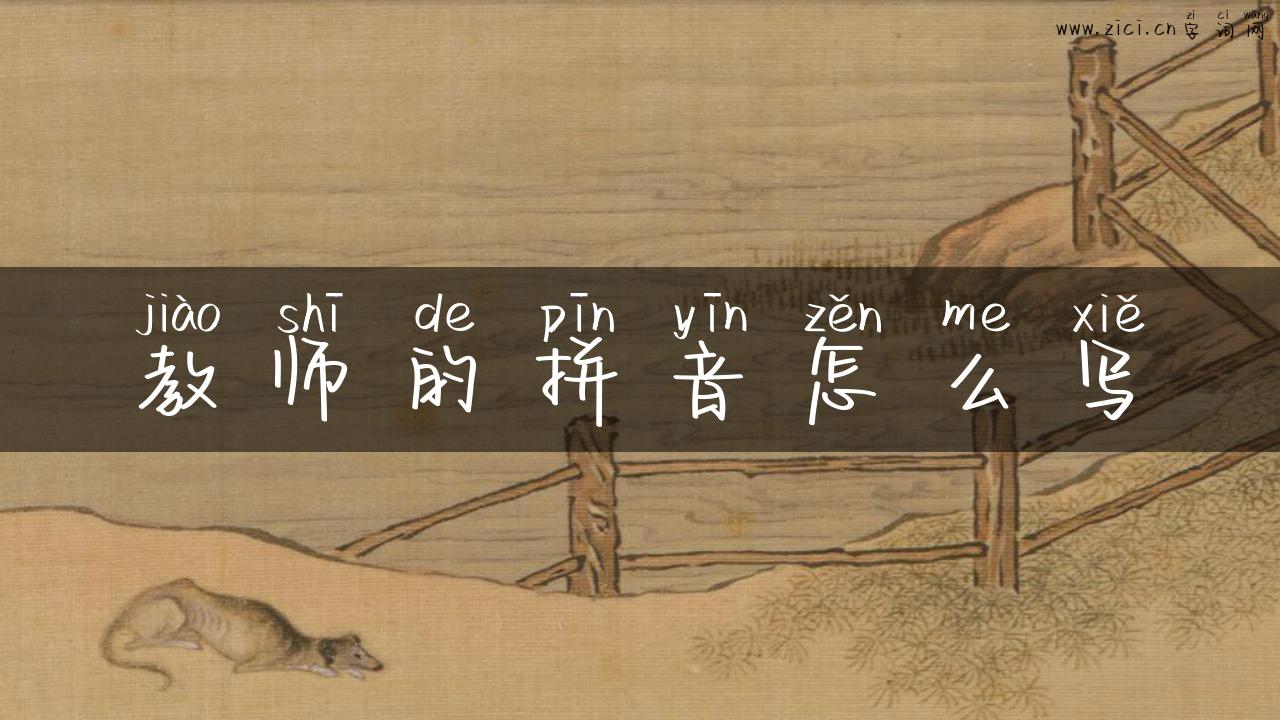 zi ci wang
www.zici.cn 字词网
jiào shī de pīn yīn zěn me xiě
教师的拼音怎么写